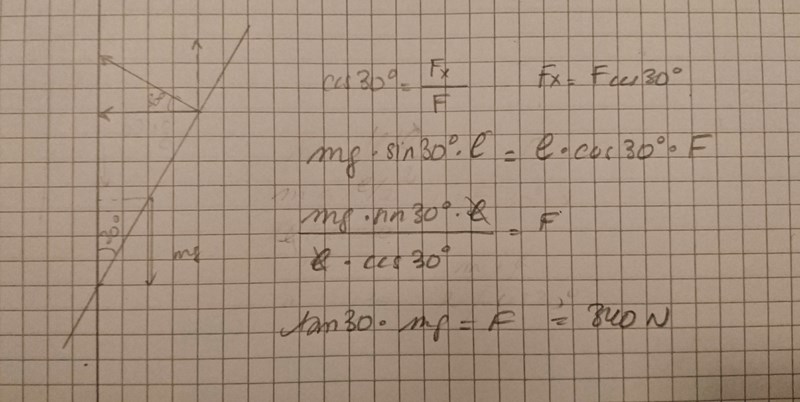 cos30° = Fx / F
Fx = F cos30°
mg · sin30° · l = l · cos30° · F
mg · sin30° · l / l · cos30° = F
30°
mg
tan30 · mg = F = 340 N